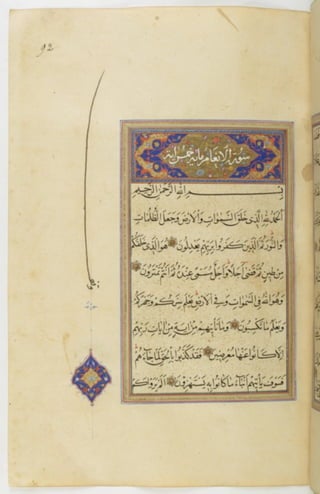 92
سورة الانعام
بِسْمِ اللهِ الرَّحْمٰنِ الرَّحِيمِ
اَلْحَمْدُ لِلهِ الَّذِي خَلَقَ السَّمٰوَاتِ وَالْاَرْضَ وَجَعَلَ الظُّلُمَاتِ
وَالنُّورَ ثُمَّ الَّذِينَ كَفَرُوا بِرَبِّهِمْ يَعْدِلُونَ هُوَ الَّذِي خَلَقَكُمْ
مِنْ طِينٍ ثُمَّ قَضٰى اَجَلًا وَاَجَلٌ مُسَمًّى عِنْدَهُ ثُمَّ اَنْتُمْ تَمْتَرُونَ
وَهُوَ اللهُ فِي السَّمٰوَاتِ وَفِي الْاَرْضِ يَعْلَمُ سِرَّكُمْ وَجَهْرَكُمْ
وَيَعْلَمُ مَا تَكْسِبُونَ وَمَا تَأْتِيهِمْ مِنْ اٰيَةٍ مِنْ اٰيَاتِ رَبِّهِمْ
اِلَّا كَانُوا عَنْهَا مُعْرِضِينَ فَقَدْ كَذَّبُوا بِالْحَقِّ لَمَّا جَاءَهُمْ
فَسَوْفَ يَأْتِيهِمْ اَنْبَاءُ مَا كَانُوا بِهِ يَسْتَهْزِؤُنَ اَلَمْ يَرَوْا كَمْ